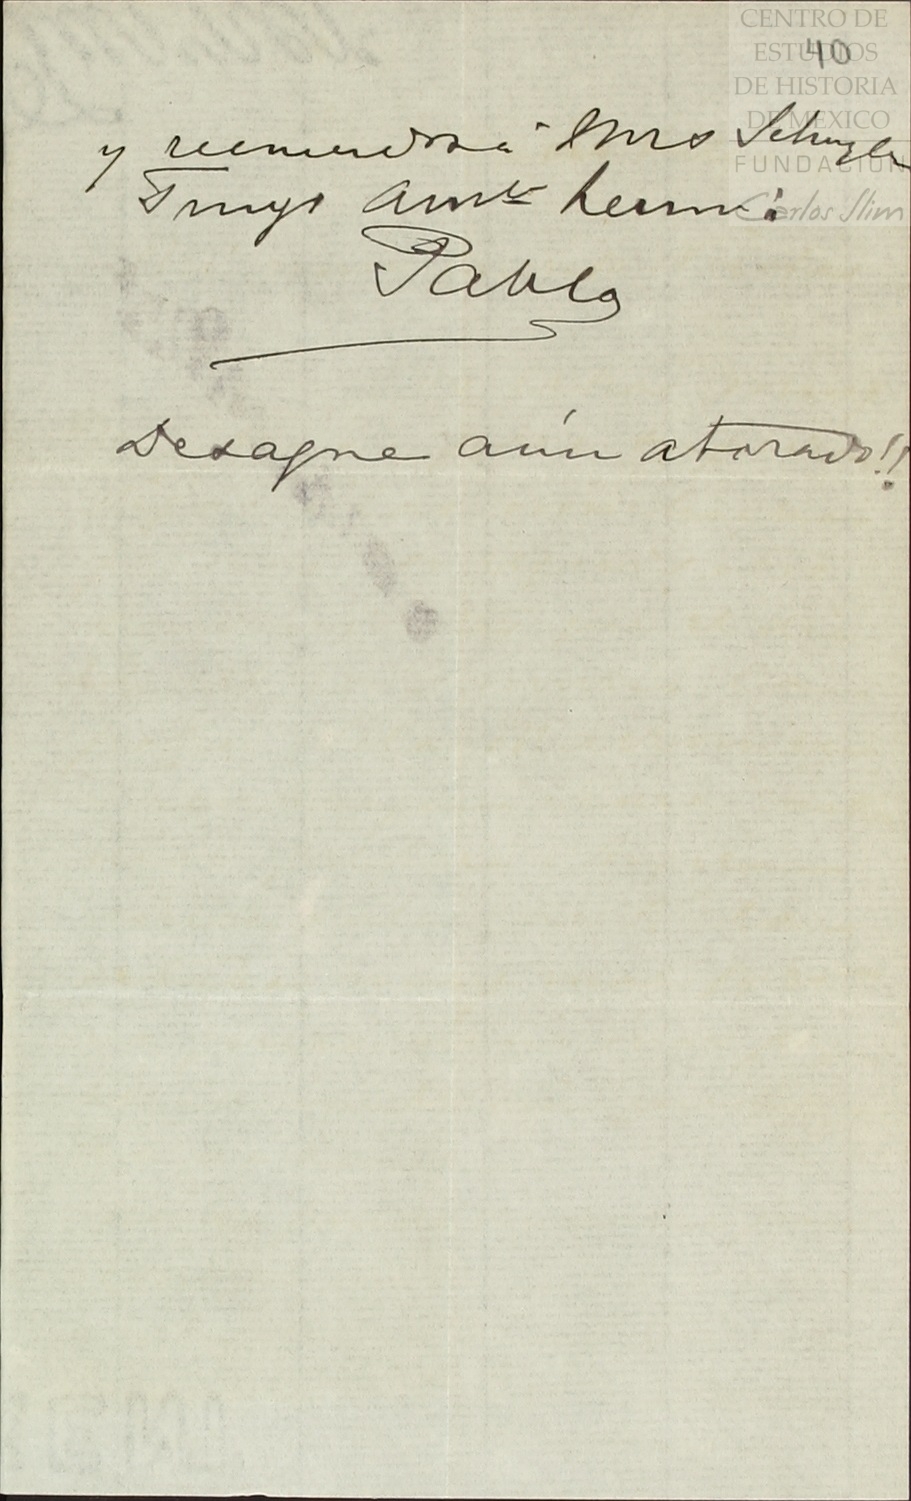 CENTRO DE
ESTUDIOS
DE HISTORIA
DE MEXICO
FUNDACION
Carlos Slim
40
y recuerdos á Mrs Schuyler
Tuyo Amte herm:
Pablo
Desague aún atorado!!